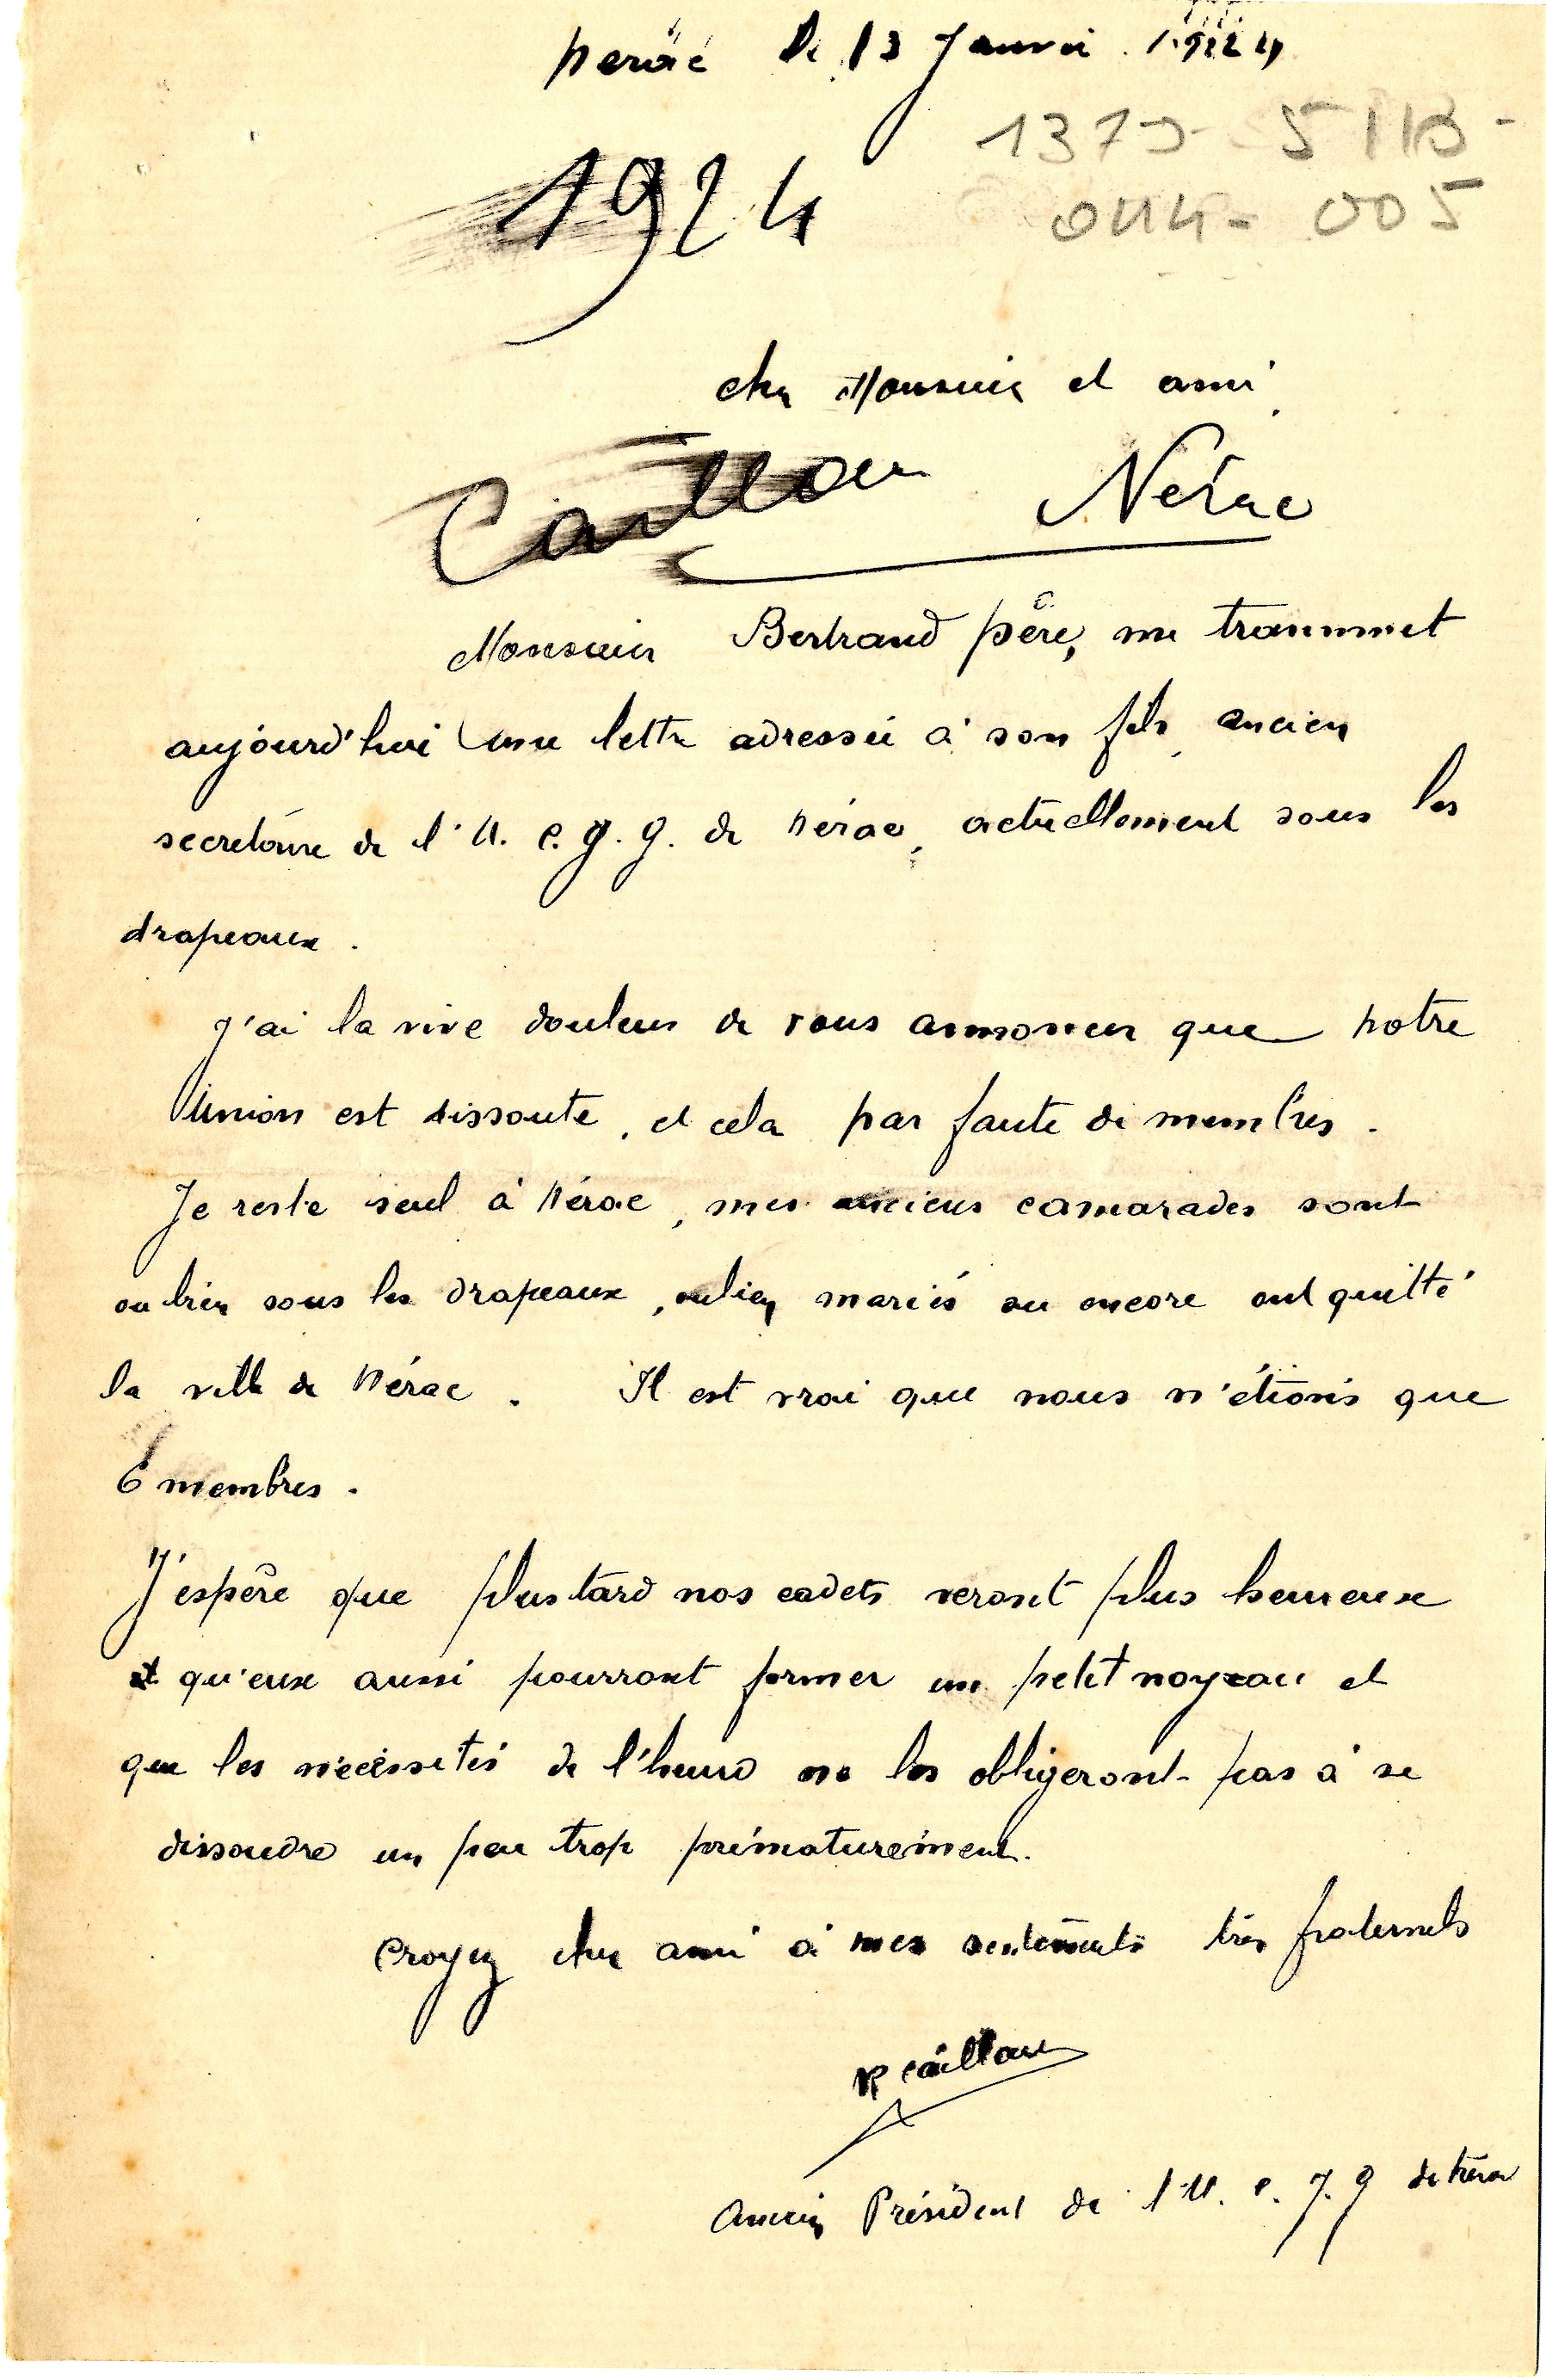 Nérac le 13 Janvier 1924
1379 - 51B -
1924
044 - 005
cher Monsieur et ami
Caillou Nérac
Monsieur Bertrand père, me transmet
aujourd'hui une lettre adressée à son fils, ancien
secretaire de l'U. C. J. G. de Nérac, actuellement sous les
drapeaux.
J'ai la vive douleur de vous annoncer que notre
Union est dissoute, et cela par faute de membres.
Je reste seul à Nérac, mes anciens camarades sont
ou bien sous les drapeaux, ou bien mariés ou encore ont quitté
la ville de Nérac. Il est vrai que nous n'étions que
6 membres.
J'espère que plus tard nos cadets seront plus heureux
et qu'eux aussi pourront former un petit noyeau et
que les nécessités de l'heure ne les obligeront pas à se
dissoudre un peu trop prématurément.
Croyez cher ami à mes sentiments très fraternels
R Caillou
Ancien Président de l'U. C. J. G de Nérac